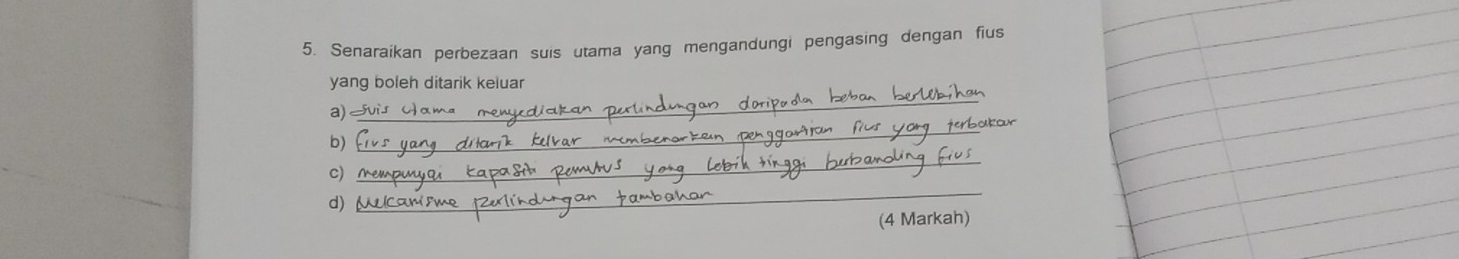 5. Senaraikan perbezaan suis utama yang mengandungi pengasing dengan fius
yang boleh ditarik keluar
a) Suis utama menyediakan perlindungan daripada beban berlebihan
b) fius yang ditarik keluar membenarkan penggantian fius yang terbakar
c) mempunyai kapasiti pemutus yang lebih tinggi berbanding fius
d) Mekanisme perlindungan tambahan
(4 Markah)